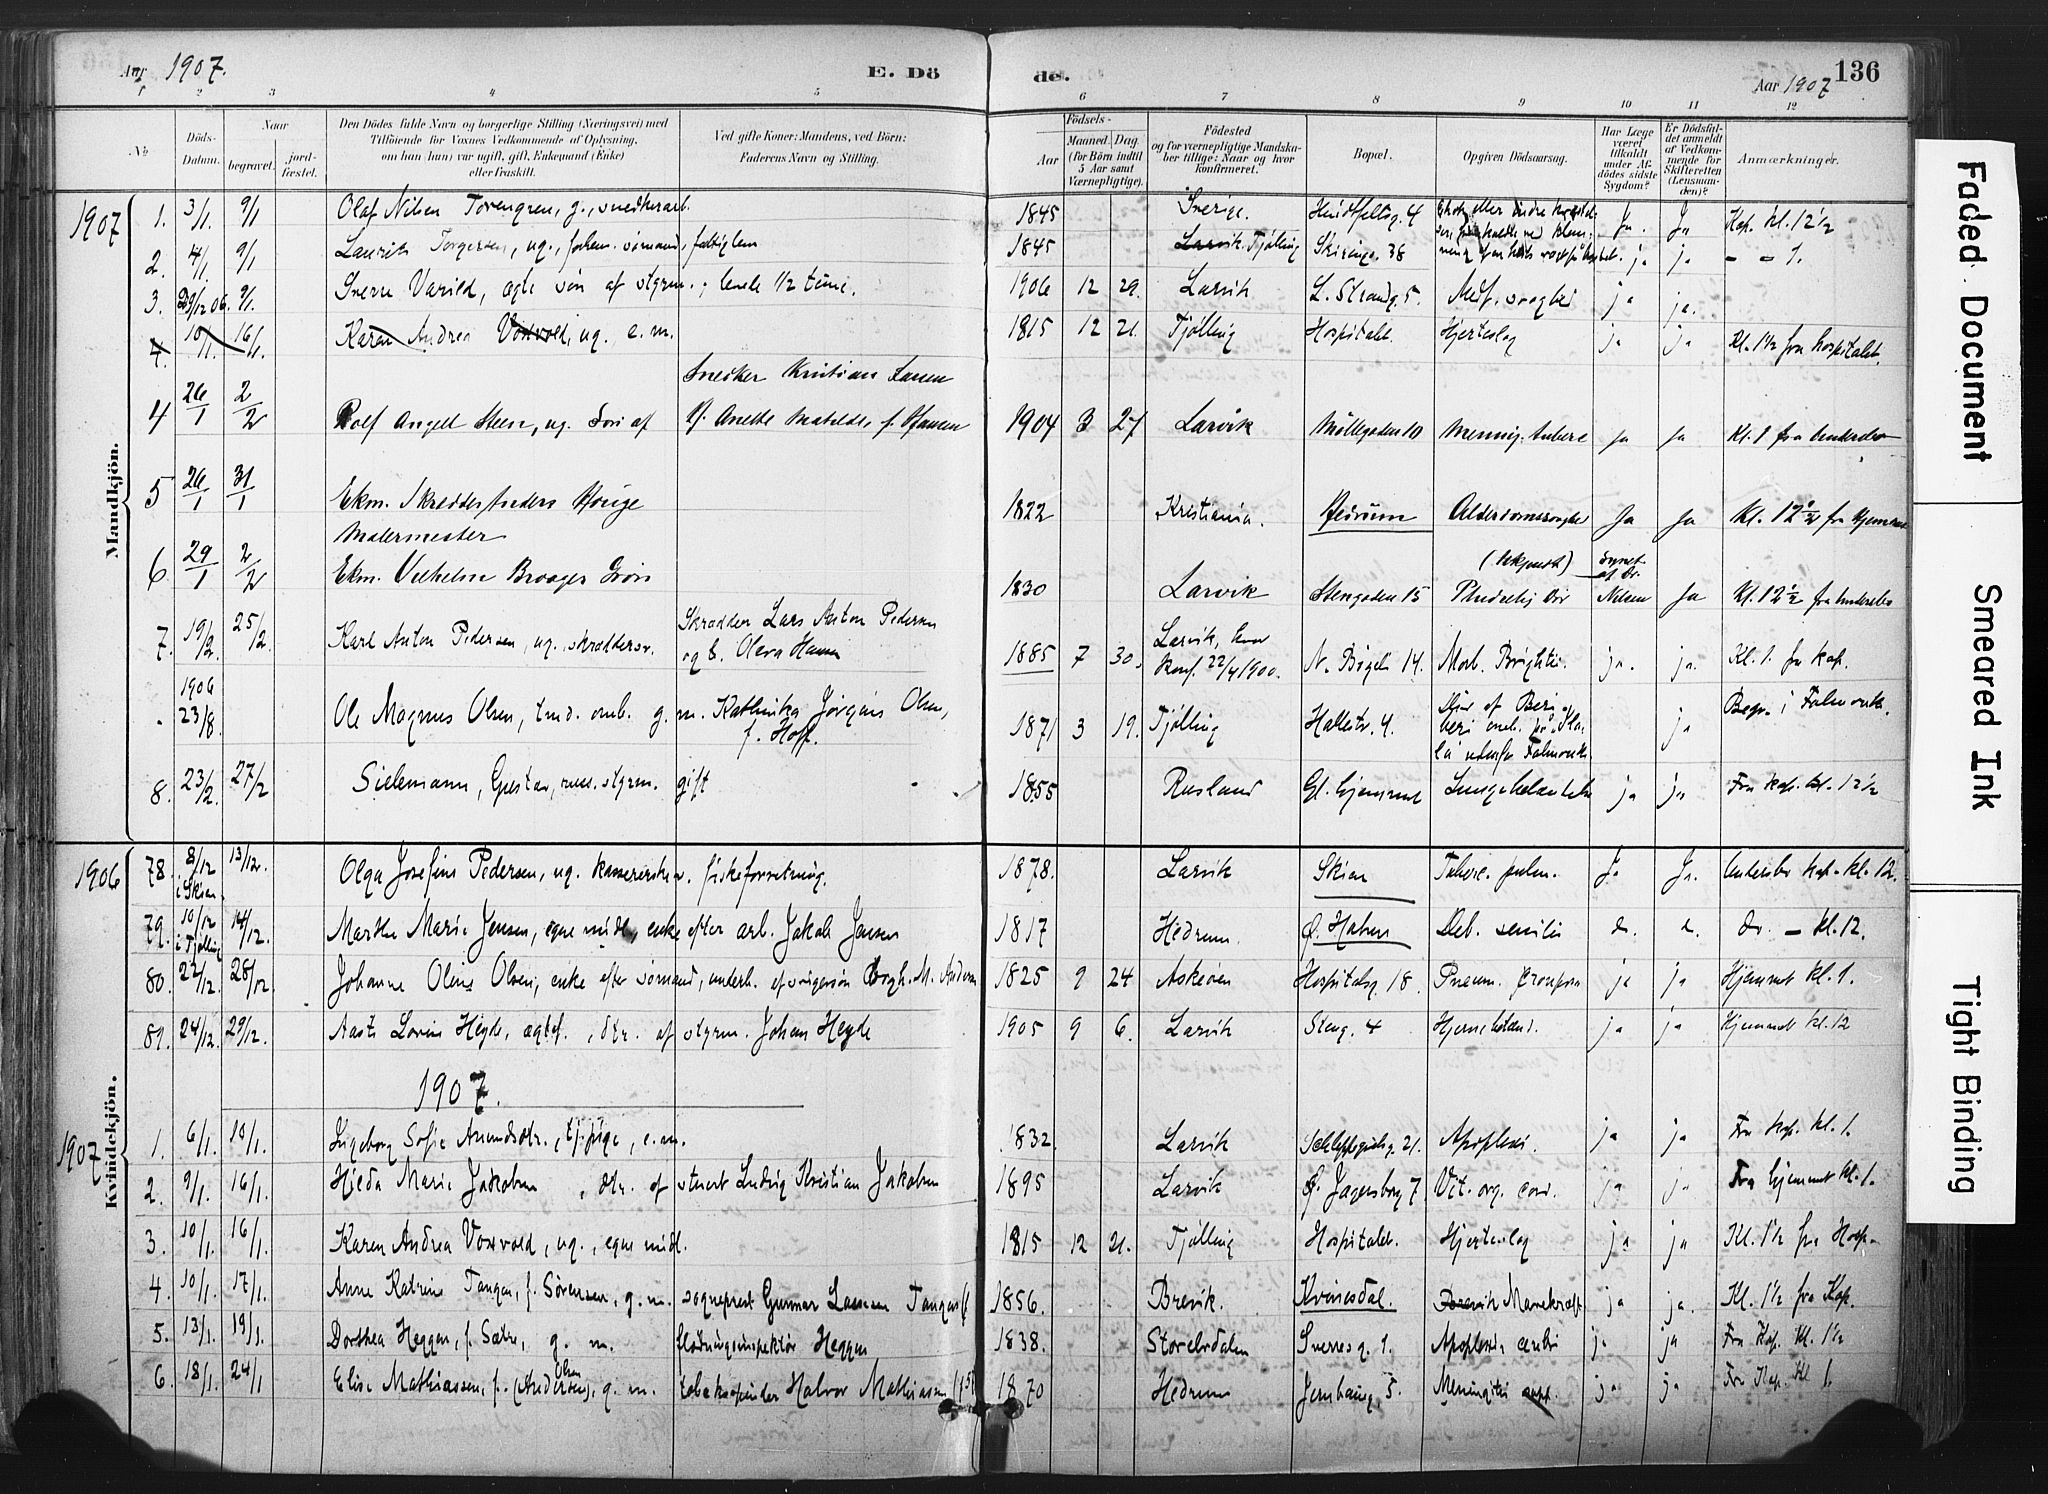 Aar 1907.
E. Dö
de.
136
Aar 1907
1 2 3 4 5 6 7 8 9 10 11 12
No
Döds-Datum.
Naar
begravet.
jord-fæstet.
Den Dödes fulde Navn og borgerlige Stilling (Næringsvei) med
Tilföiende for Voxnes Vedkommende af Oplysning,
om han (hun) var ugift, gift, Enkemand (Enke)
eller fraskilt.
Ved gifte Koner: Mandens, ved Börn:
Faderens Navn og Stilling.
Födsels-
Aar
Maaned. Dag.
(for Börn indtil
5 Aar samt
Værnepligtige).
Födested
og for værnepligtige Mandska-
ber tillige: Naar og hvor
konfirmeret.
Bopæl.
Opgiven Dödsaarsag.
Har Læge
været
tilkaldt
under Af-
dödes sidste
Sygdom?
Er Dödsfal-
det anmeldt
af Vedkom-
mende for
Skifteretten
(Lensman-
den)?
Anmærkninger.
Mandkjön.
1907
1. 3/1. 9/1 Olaf Nilsen Torengren, g., snedkerarb. 1845 Sverige. 4 Ja. Ja Kap. kl. 12½
2. 4/1. 9/1 Laurits Torgersen, ug., sømand, fattiglem 1845 Larvik. Tjølling 38 ja ja - - 1.
3. 29/12 06. 9/1. Sverre Varild, ægte søn af styrm., levede ½ time. 1906 12 29. Larvik L. Strandg. 5. Medf. svaghed ja ja.
4. 10/1. 16/1. Karen Andrea Voxvold, ug. e. m. 1815 12 21. Tjølling Hospitalet. Hjerteslag ja ja Kl. 1½ fra hospitalet.
Snedker Kristian Larsen
4 26/1 2/2 Rolf Angell Steen, ug. Søn af 1904 3 27 Larvik Møllegaden 10 ja ja Kl. 1 fra
5 26/1 31/1 Ekm. Skredder Anders Hauge 1822 Kristiania. Hedrum Alderdomssvaghed Ja Ja Kl. 12½ fra Hjemmet
Malermester
6 29/1 2/2 Ekm. Vilhelm Brager Grøn 1830 Larvik Stengaden 15 Pludselig Død Nilsen Ja Kl. 12½ fra
7. 19/2. 25/2 Karl Anton Pedersen, ug., skræddersv. Skrædder Lars Anton Pedersen
og h. Olava Hansen 1885 7 30. Larvik, hvor
konf. 22/4 1900. N. Bøgeli 14. Morb. Brightii. ja. ja. Kl. 1. fra kap.
1906
23/8 Ole Magnus Olsen, g. m. Kathinka Jørgine Olsen,
f. Hoff. 1871 3 19. Tjølling 4. ja
8. 23/2. 27/2 Sielemann, Gustav, russ. styrm. gift 1855 Rusland Gl. hjemmet Lungebetændelse ja ja Fra kap. kl. 12½
Kvindekjön.
1906
78. 8/12 i Skien. 13/12. Olga Josefine Pedersen, ug. kassererske v. fiskeforretning. 1878. Larvik Skien Tuberc. pulm. Ja Ja. Undersbo kap. kl. 12.
79. 10/12 i Tjølling 14/12. Marthe Marie Jensen, egne midl., enke efter arb. Jakob Jensen 1817 Hedrum. Ø. Halsen Deb. senilis do. do. do. - kl. 12.
80. 22/12. 28/12 Johanne Oline Olsen, enke efter sømand, underh. af svigersøn M. Andersen 1825 9 24. Askøen Hospitalsg. 18. Pneum. crouposa ja ja Hjemmet kl. 1.
81. 24/12. 29/12. Aasta Lovise Heyde, ægtef., dtr. af styrm. Johan Heyde 1905 9 6. Larvik Steng. 4 Hjernebetænd. ja ja Hjemmet kl. 12
1907.
1907
1. 6/1. 10/1. Ingeborg Sofie Amundsdtr., tjpige, e. m. 1832. Larvik 21. Apoplexi. ja ja Fra kap. kl. 1.
2. 9/1. 16/1. Hilda Marie Jakobsen, dtr. af stuert Ludvig Kristian Jakobsen 1895 Larvik Ø. Jagersborg 7 Vit. org. cord. ja ja Fra hjemmet kl. 1.
3. 10/1. 16/1. Karen Andrea Voxvold, ug., egne midl. 1815 12 21. Tjølling Hospitalet. Hjerteslag ja ja Kl. 1½ fra Hosp.
4. 10/1. 17/1. Anne Katrine Tangen, f. Sørensen, g. m. sogneprest Gunnar Lassesen Tangen 1856. Brevik. Kvinesdal. Brevik Mavekræft ja ja. Kl. 1½ fra Kap.
5. 13/1. 19/1. Dorthea Heggen, f. Sætre, g. m. fløtningsinspektør Heggen 1838. Storelvdalen Sverresg. 1. Apoplexia cerebri ja ja Fra Kap. kl. 1½
6. 18/1. 24/1 Elise Mathiassen, f. (Andersen) Olsen, g. m. tobakspinder Halvor Mathiassen 1870 Hedrum 5. Meningitis ja ja Fra Kap. kl. 1.
Faded Document
Smeared Ink
Tight Binding